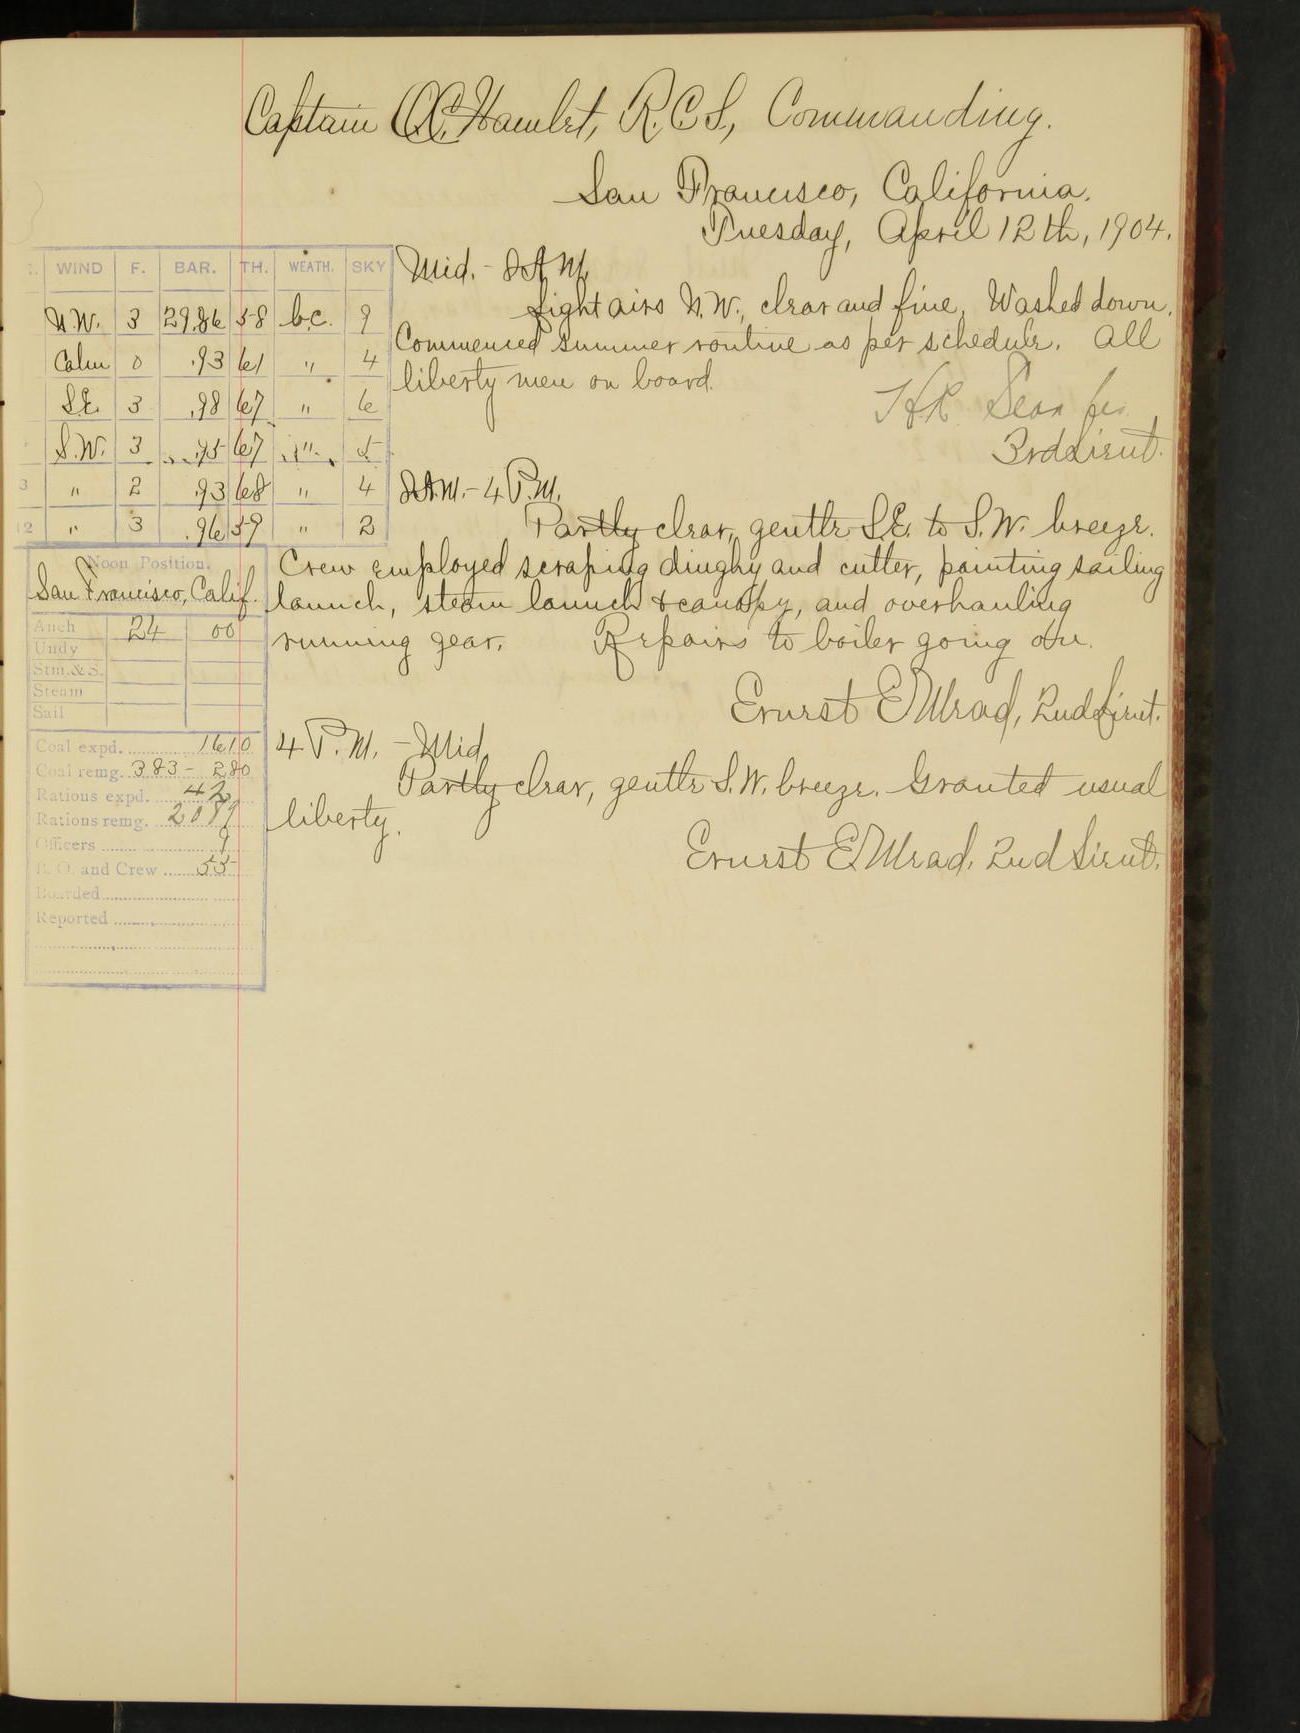 Captain O.C. Hamlet, R.C.S., Commanding.
San Francisco, California.
Tuesday, April 12th, 1904.
WIND F. BAR. TH. WEATH. SKY
N.W. 3 29.86 58 b.c. 9
Calm 0 .93 61 " 4
S.E. 3 .98 67 " 6
S.W. 3 .95 67 " 5
3 " 2 .93 68 " 4
12 " 3 .96 59 " 2
Mid. - 8 A.M.
Light airs N.W., clear and fine. Washed down.
Commenced summer routine as per schedule. All
liberty men on board.
3rd Lieut.
8 A.M. - 4 P.M.
Partly clear, gentle S.E. to S.W. breeze.
Crew employed scraping dinghy and cutter, painting sailing
launch, steam launch & canopy, and overhauling
running gear. Repairs to boiler going on.
Ernest E. Mead, 2nd Lieut.
4 P.M. - Mid.
Partly clear, gentle S.W. breeze. Granted usual
liberty.
Ernest E. Mead, 2nd Lieut.
Noon Position.
San Francisco, Calif.
Anch 24 00
Undy
Stm. & S.
Steam
Sail
Coal expd. 1610
Coal remg. 383 - 280
Rations expd. 42
Rations remg.
Officers 9
P. O. and Crew 55
Boarded
Reported